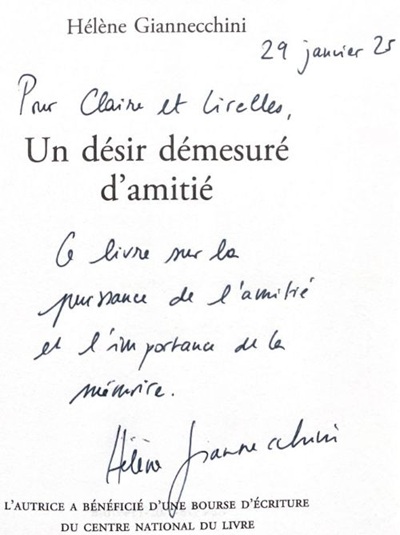 Hélène Giannecchini
29 janvier 25
Pour Claire et Lirelles,
Un désir démesuré
d'amitié
Ce livre sur la
puissance de l'amitié
et l'importance de la
mémoire.
Hélène Giannecchini
L'AUTRICE A BÉNÉFICIÉ D'UNE BOURSE D'ÉCRITURE
DU CENTRE NATIONAL DU LIVRE